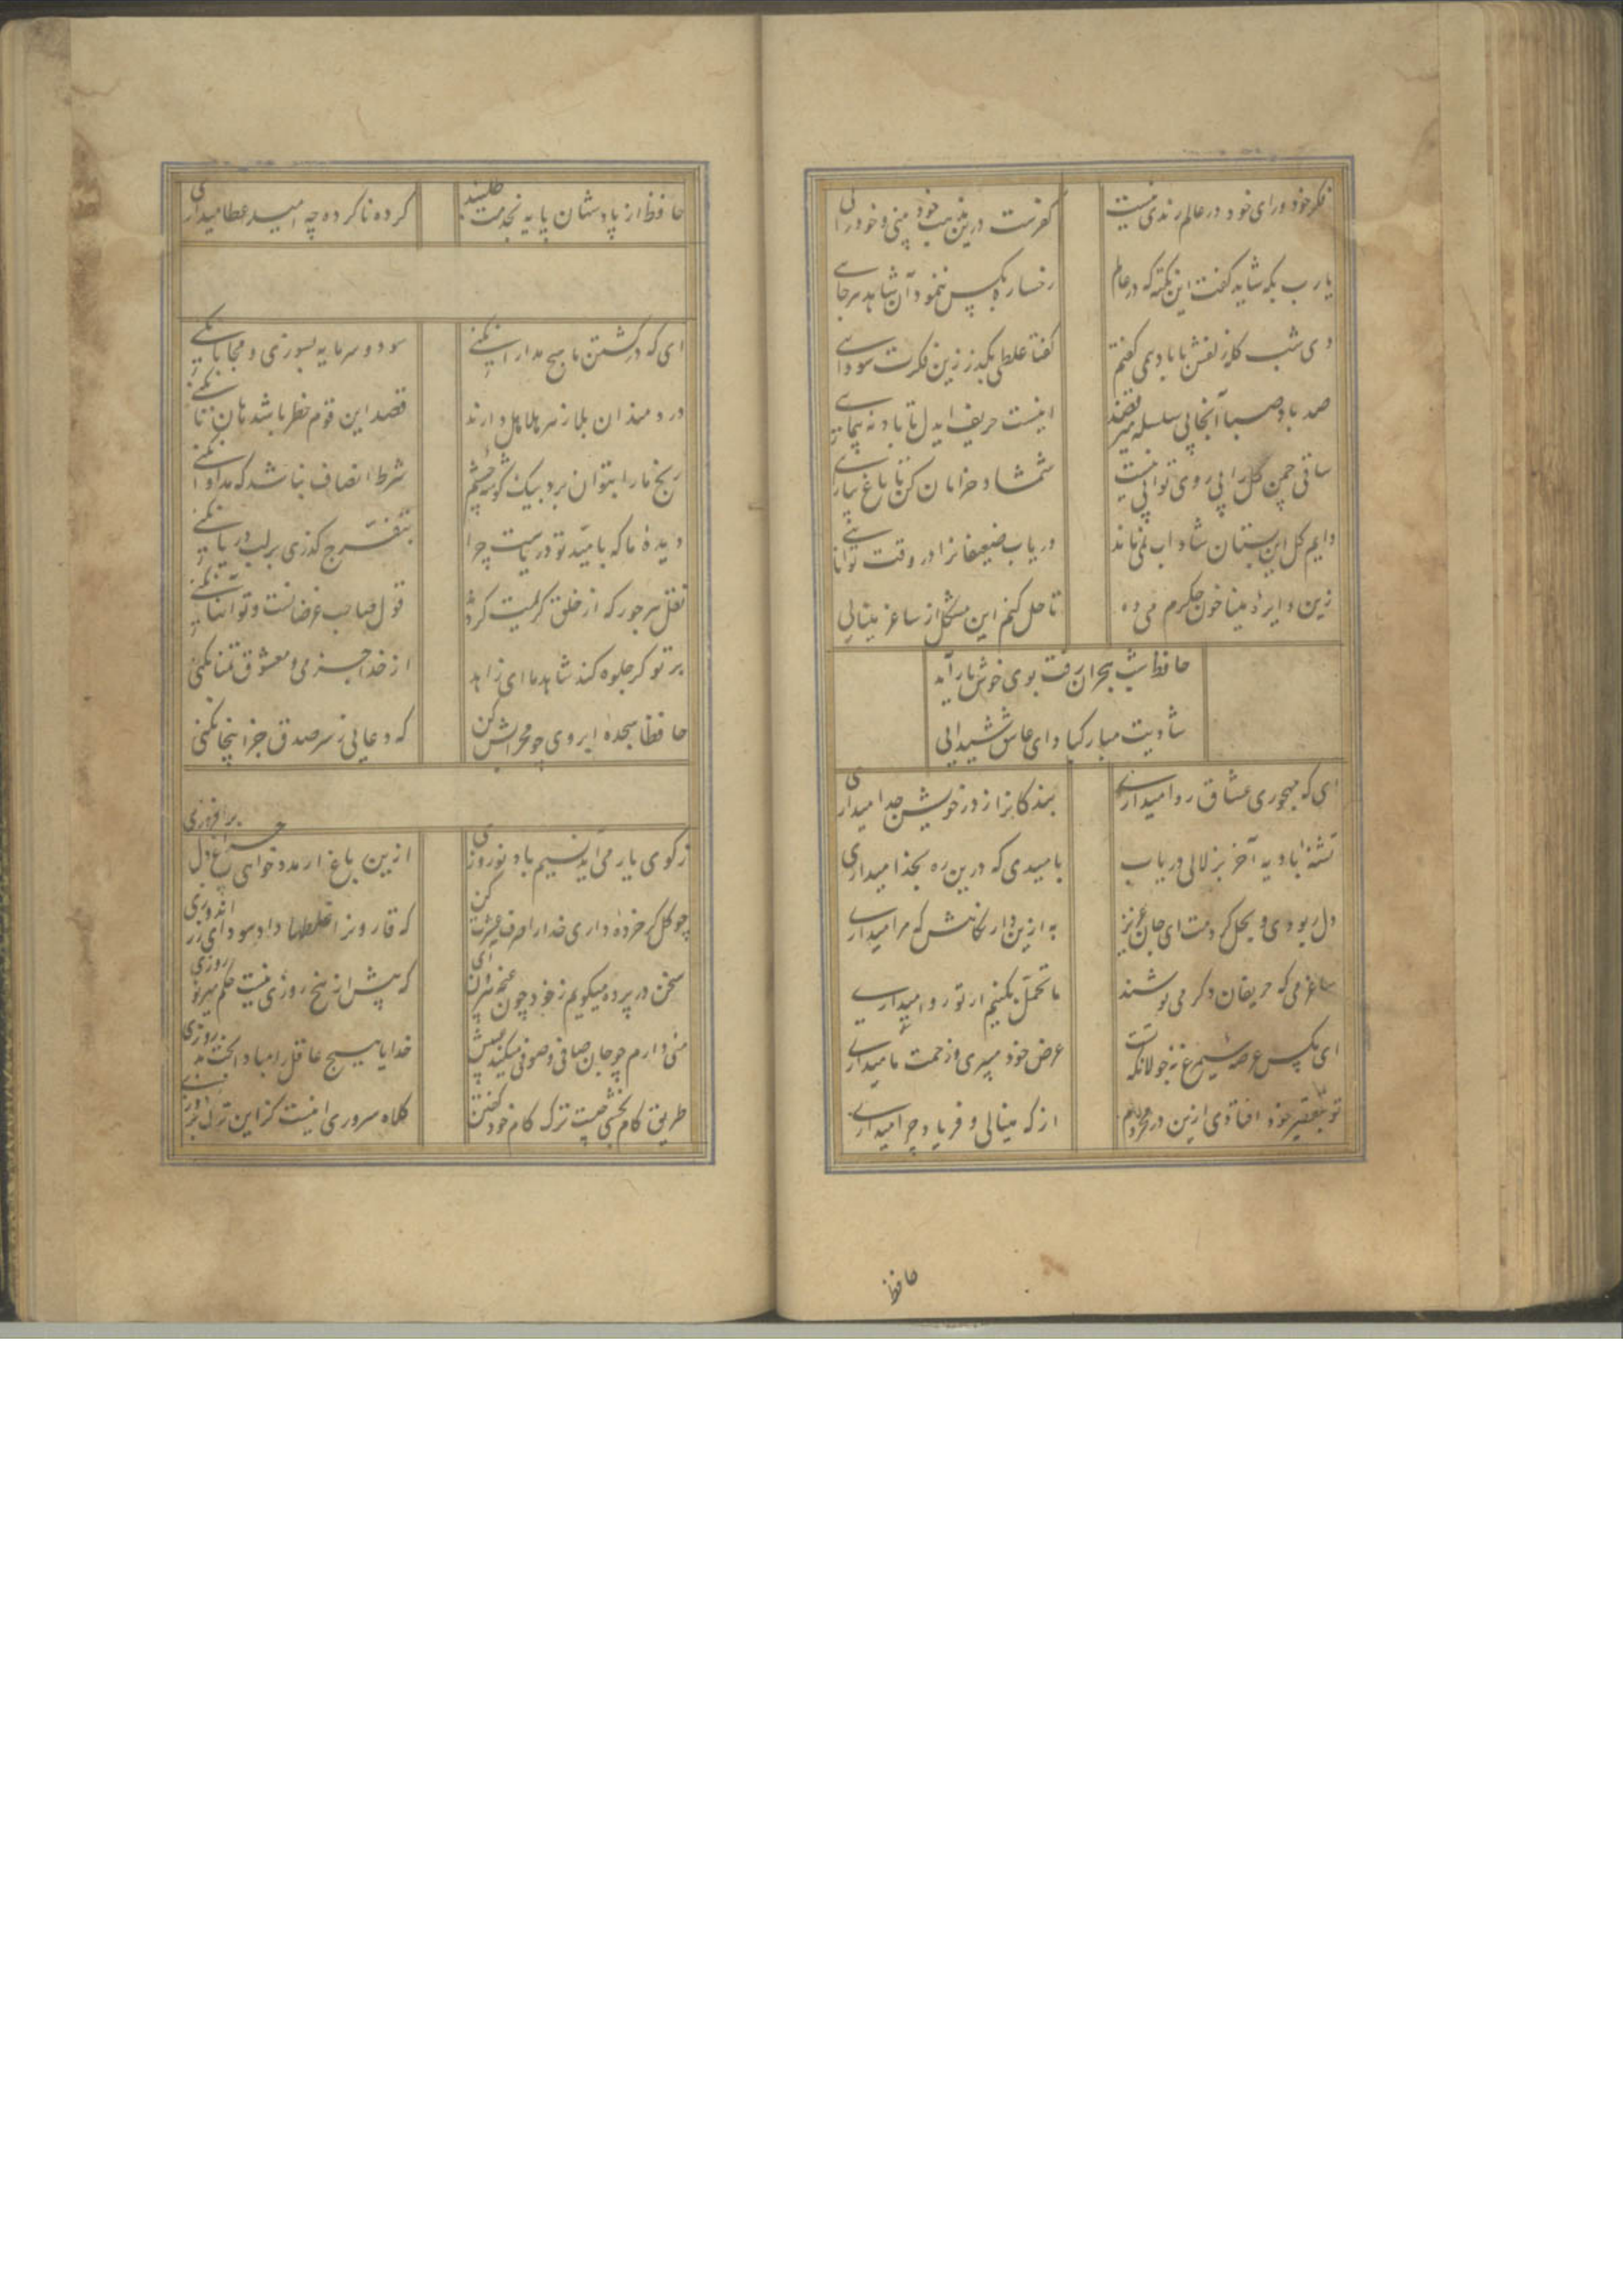 فکر خود و رای خود در عالم رندی نیست
کفرست درین مذهب خود بینی و خود رایی
یا رب بکه شاید گفت این نکته که در عالم
رخساره بکس ننمود آن شاهد هرجایی
دی شب گله زلفش با باد همی گفتم
گفتا غلطی بگذر زین فکرت سودایی
صد باد صبا آنجا بی سلسله میرقصند
اینست حریف ای دل تا باد نه پیمایی
ساقی چمن گل را بی روی تو آبی نیست
شمشاد خرامان کن تا باغ بیارایی
دایم گل این بستان شاداب نمی ماند
دریاب ضعیفانرا در وقت توانایی
زین دایره مینا خون جگرم می ده
تا حل کنم این مشکل از ساغر مینایی
حافظ شب هجران رفت بوی خوش یار آمد
شادیت مبارکباد ای عاشق شیدایی
ای که مهجوری عشاق روا میداری
بندگانرا ز در خویش جدا میداری
تشنه بادیه را آخر بزلالی دریاب
بامیدی که درین ره بخدا میداری
دل ربودی و بحل کردمت ای جان عزیز
به ازین دار نگاهش که مرا میداری
ساغر می که حریفان دگر می نوشند
ما تحمل بکنیم ار تو روا میداری
ای مگس عرصه سیمرغ نه جولانگه تست
عرض خود میبری و زحمت ما میداری
تو بتقصیر خود افتادی ازین در محروم
از که مینالی و فریاد چرا میداری
حافظ
حافظ از پادشهان پایه بخدمت طلبند
کرده ناکرده چه امید عطا میداری
ای که در کشتن ما هیچ مدارا نکنی
سود و سرمایه بسوزی و محابا نکنی
دردمندان بلا زهر هلاهل دارند
قصد این قوم خطر باشد هان تا نکنی
رنج ما را بتوان برد بیک گوشه چشم
شرط انصاف نباشد که مداوا نکنی
دیده ما که بامید تو دریاست چرا
بتفرج گذری بر لب دریا نکنی
نقل هر جور که از خلق کریمت کردند
قول صاحب غرضانست تو آنها نکنی
بر تو گر جلوه کند شاهد ما ای زاهد
از خدا جز می و معشوق تمنا نکنی
حافظا سجده ابروی چو محرابش کن
که دعایی ز سر صدق جز اینجا نکنی
ز کوی یار می آید نسیم باد نوروزی
ازین باغ ار مدد خواهی چراغ دل برافروزی
چو گل گر خرده داری خدا را صرف عشرت کن
که قارونرا غلطها داد سودای زر اندوزی
سخن در پرده میگویم ز خود چون غنچه بیرون آی
که بیش از پنج روزی نیست حکم میر نوروزی
می دارم چو جان صافی و صوفی میکند عیبش
خدایا هیچ عاقل را مبادا بخت بد روزی
طریق کام بخشی چیست ترک کام خود گفتن
کلاه سروری اینست کز این ترک بر دوزی